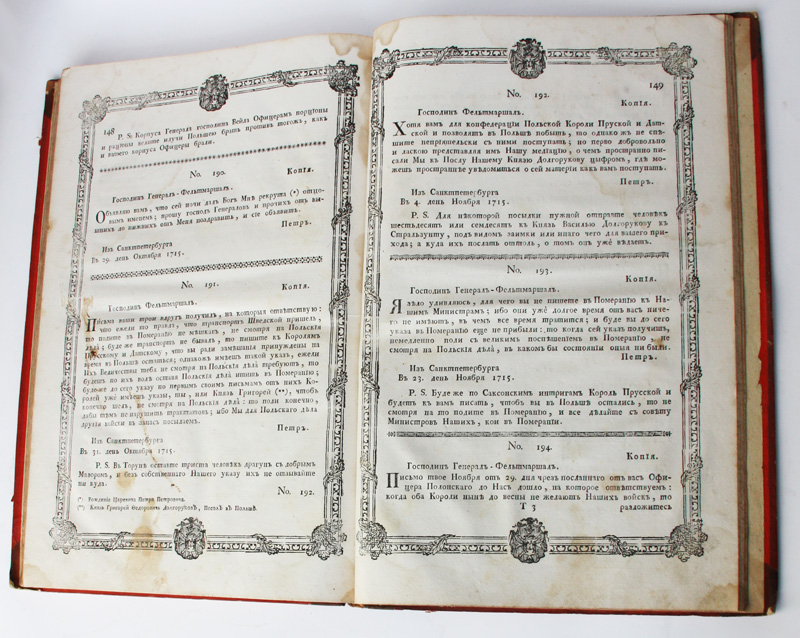 148
P. S. Корпуса Генерал господин Вейл Офицерам порціоны
и раціоны велите изъ Польшею брать противъ тогожъ, какъ
и вашего корпуса Офицеры брали.
No. 190.
Копія.
Господинъ Генералъ-Фельтмаршалъ.
Объявляю вамъ, что сей ночи далъ Богъ Мнѣ рекрута (*) отцо-
вымъ именемъ; прошу господъ Генераловъ и прочихъ отъ вы-
шнихъ до нижнихъ отъ Меня поздравить, и сіе объявить.
Петръ.
Изъ Санктпетербурга
Въ 29. день Октября 1715.
No. 191.
Копія.
Господинъ Фельтмаршалъ.
Письма ваши трои вдругъ получилъ, на которыя отвѣтствую:
что ежели по приказ, что транспортъ Шведской пришелъ,
то подите въ Померанію не мѣшкавъ, не смотря на Польскія
дѣла; буде же транспортъ не бывалъ, то пишите къ Королямъ
Прусскому и Датскому, что вы ради замѣшанія принуждены на
время въ Польшѣ остаться; однакожъ имѣетъ такой указъ, ежели
Ихъ Величествы треба не смотря на Польскія дѣла требуютъ, то
будешь по ихъ волѣ оставя Польскія дѣла итить въ Померанію;
буде же до сего указу по первымъ своимъ письмамъ отъ нихъ Ко-
ролей уже имѣешь указъ, ты, или Князь Григорей (**), чтобъ
конечно шолъ, не смотря на Польскія дѣла: то поди конечно,
дабы тѣмъ не нарушить трактатовъ; ибо Мы для Польскаго дѣла
другія войски въ запасъ посылаемъ.
Петръ.
Изъ Санктпетербурга
Въ 31. день Октября 1715.
P. S. Въ Торунѣ оставте триста человѣкъ драгунъ съ добрымъ
Маэоромъ, и безъ собственнаго Нашего указу ихъ не отзывайте
ни куда.
No. 192.
(*) Рожденіе Царевича Петра Петровича.
(**) Князь Григорей Ѳедоровичъ Долгоруковъ, Посолъ въ Польшѣ.
149
No. 192.
Копія.
Господинъ Фельтмаршалъ.
Хотя вамъ для конфедераціи Польской Короли Пруской и Дат-
ской и позволятъ въ Польшѣ побыть, то однакожъ не спѣ-
шите непріятельски съ ними поступать; но перво добровольно
и ласкою представляя имъ Нашу медіацію, о чемъ пространно пи-
сали Мы къ Послу Нашему Князю Долгорукову цыфромъ, гдѣ мо-
жешь пространнѣе увѣдомиться о сей матеріи какъ вамъ поступать.
Петръ.
Изъ Санктпетербурга
Въ 4. день Ноября 1715.
P. S. Для нѣкоторой посылки нужной отправте человѣкъ
шестьдесятъ или семдесятъ къ Князь Василью Долгорукову къ
Стральзунту, подъ видомъ заимки или инаго чего для вашего при-
хода; а куда ихъ послать оттоль, о томъ онъ уже вѣдаетъ.
No. 193.
Копія.
Господинъ Генералъ-Фельтмаршалъ.
Я зѣло удивляюсь, для чего вы не пишете въ Померанію къ На-
шимъ Министрамъ; ибо они уже долгое время отъ васъ ниче-
го не имѣютъ, въ чемъ все время тратится; и буде вы до сего
указа въ Померанію еще не прибыли: то когда сей указъ получишь,
немедленно поди съ великимъ поспѣшеніемъ въ Померанію, не
смотря на Польскія дѣла, въ какомъ бы состояніи оныя ни были.
Петръ.
Изъ Санктпетербурга
Въ 23. день Ноября 1715.
P. S. Буде же по Саксонскимъ интригамъ Король Прусской и
будетъ къ вамъ писать, чтобъ вы въ Польшѣ остались, то не
смотря на то подите въ Померанію, и все дѣлайте съ совѣту
Министровъ Нашихъ, кои въ Помераніи.
No. 194.
Копія.
Господинъ Генералъ-Фельтмаршалъ.
Письмо твое Ноября отъ 29. дня чрезъ посланнаго отъ васъ Офи-
цера Полонскаго до Насъ дошло, на которое отвѣтствуемъ:
когда оба Короли нынѣ до весны не желаютъ Нашихъ войскъ, то
Т 3
разложитесь